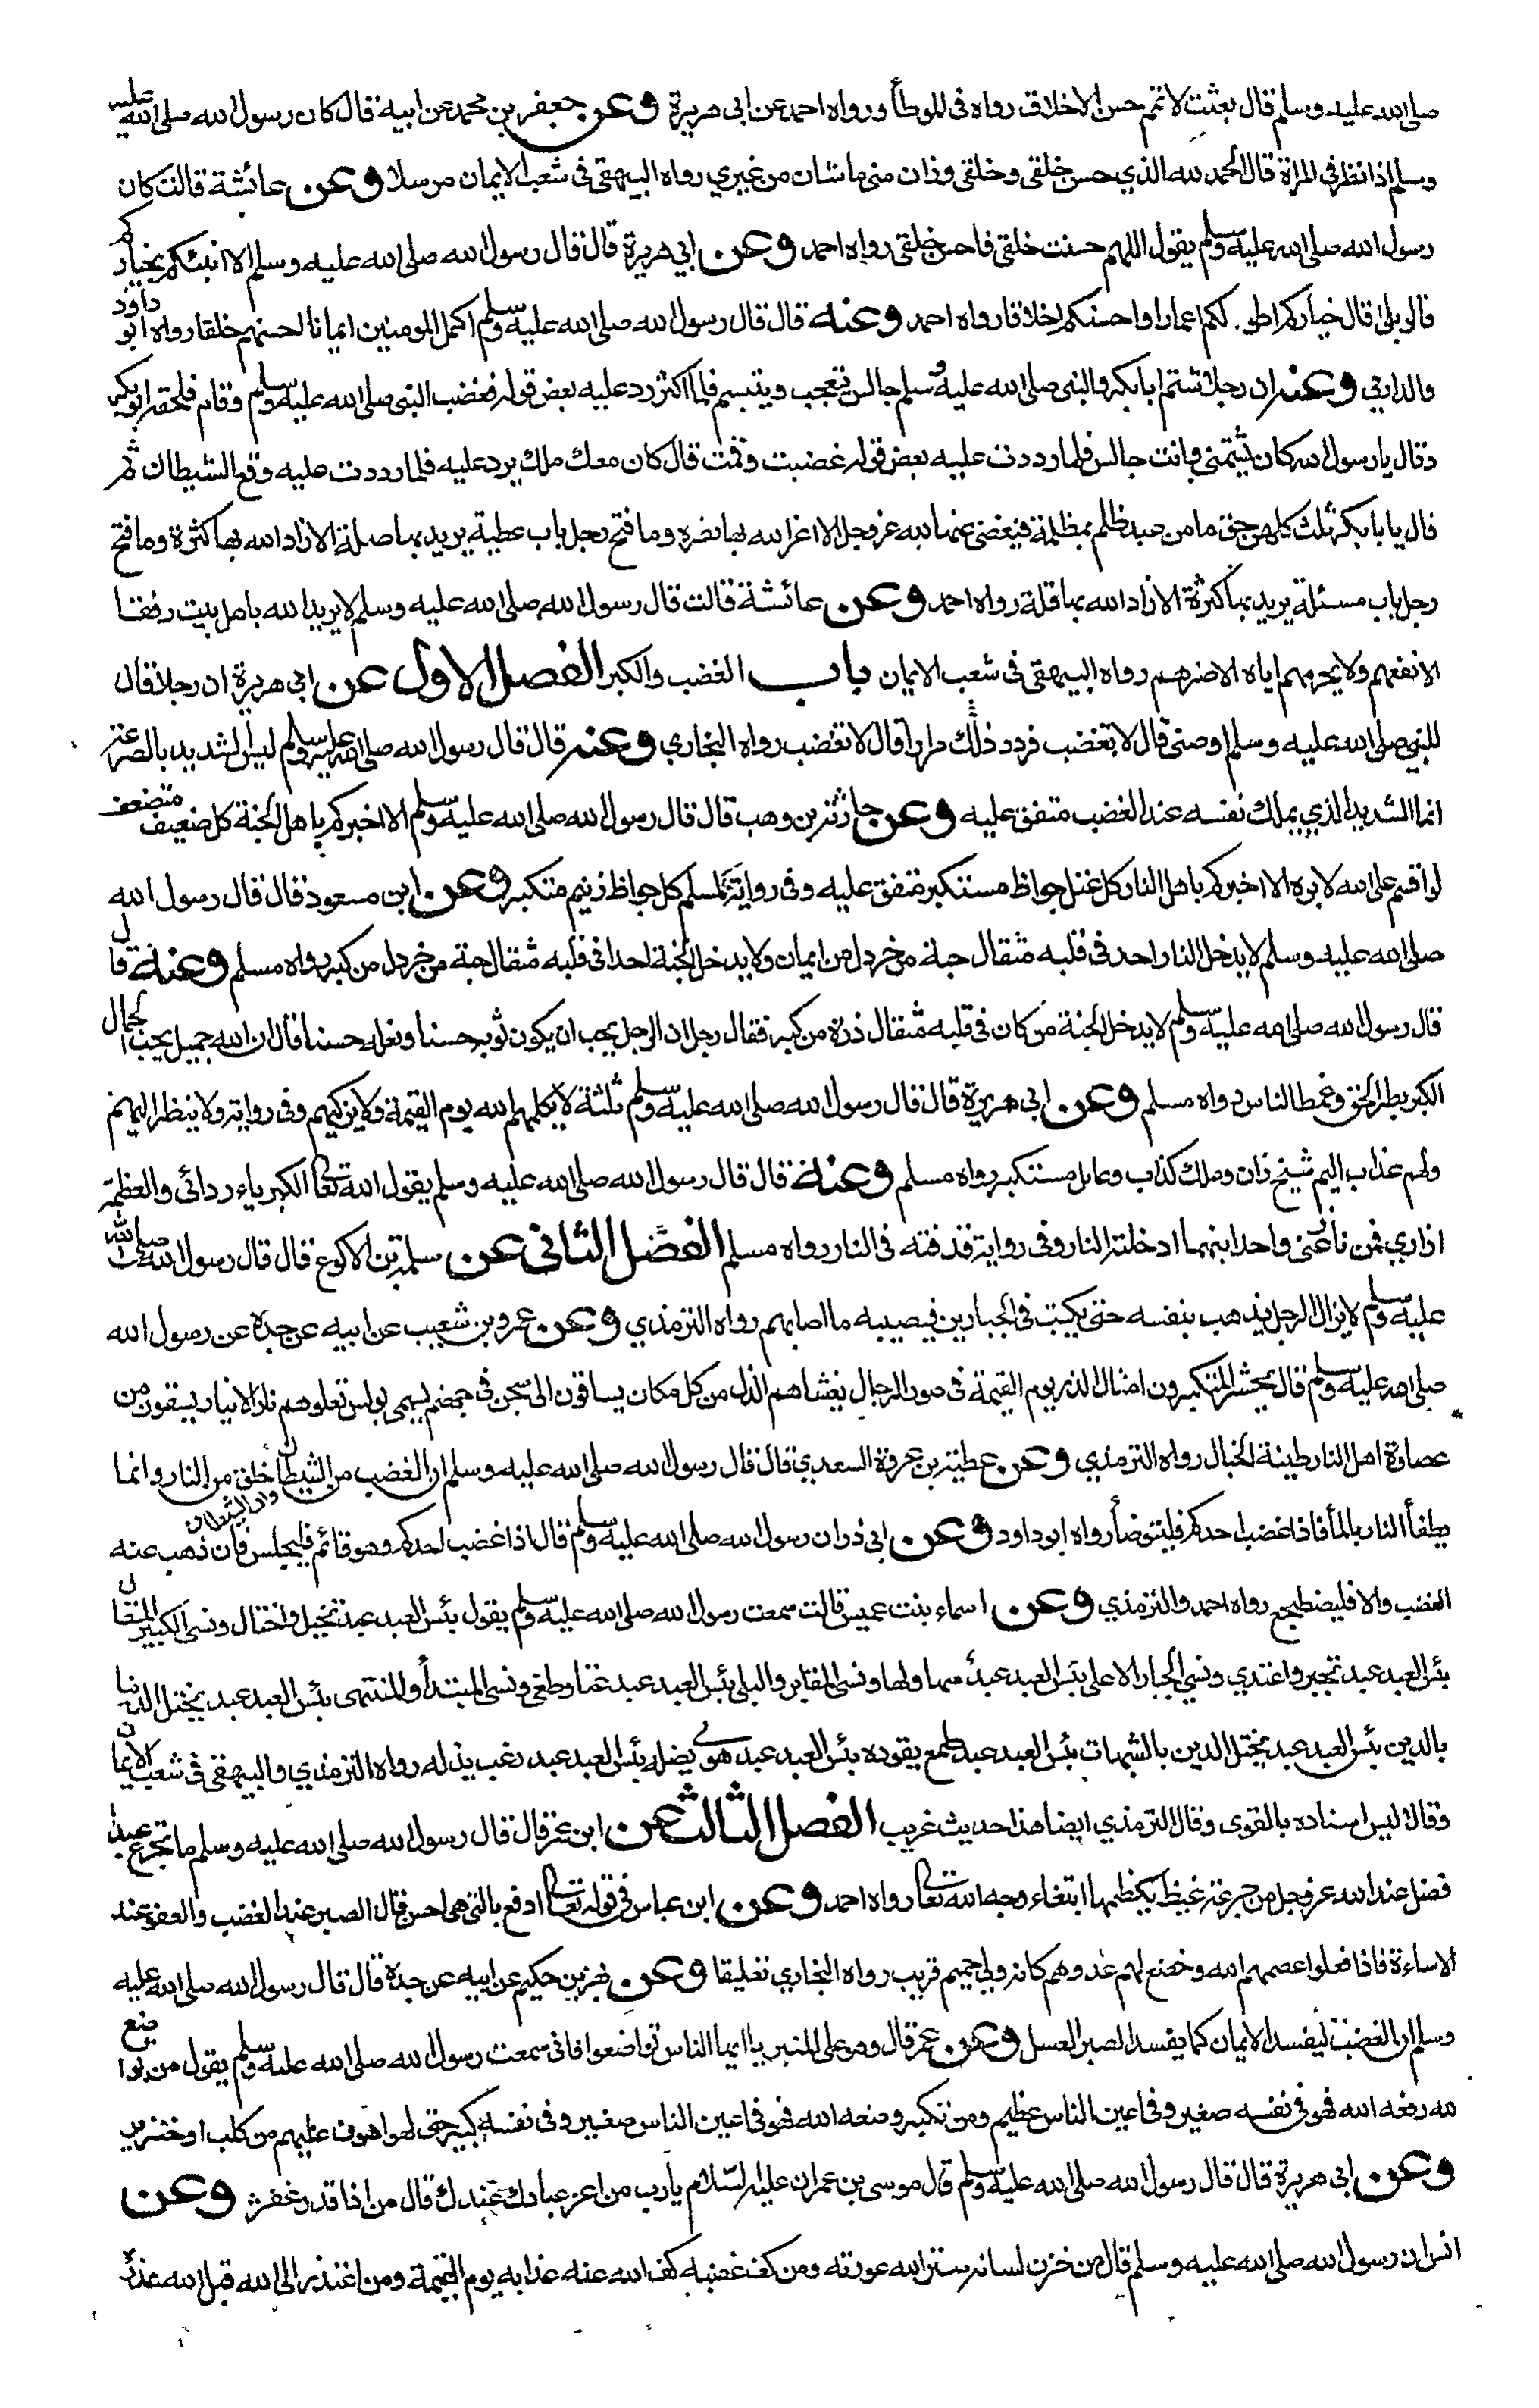 صلى الله عليه وسلم قال بعثت لاتمم حسن الاخلاق رواه فى الموطأ ورواه احمد عن ابى هريرة وعن جعفر بن محمد عن ابيه قال كان رسول الله صلى الله عليه
وسلم اذا نظر فى المراة قال الحمد لله الذي حسن خلقى وخلقى وزان منى ما شان من غيري رواه البيهقى فى شعب الايمان مرسلا وعن عائشة قالت كان
رسول الله صلى الله عليه وسلم يقول اللهم حسنت خلقى فاحسن خلقى رواه احمد وعن ابي هريرة قال قال رسول الله صلى الله عليه وسلم الا انبئكم بخياركم
قالوا بلى قال خياركم اطولكم اعمارا واحسنكم اخلاقا رواه احمد وعنه قال قال رسول الله صلى الله عليه وسلم اكمل المومنين ايمانا احسنهم خلقا رواه ابو داود
والدارمي وعنه ان رجلا شتم ابا بكر والنبى صلى الله عليه وسلم جالس تعجب ويتبسم فلما اكثر رد عليه بعض قوله فغضب النبى صلى الله عليه وسلم وقام فلحقه ابو بكر
وقال يا رسول الله كان يشتمنى وانت جالس فلما رددت عليه بعض قوله غضبت وقمت قال كان معك ملك يرد عليه فلما رددت عليه وقع الشيطان ثم
قال يا با بكر ثلث كلهن حق ما من عبد ظلم بمظلمة فيغضى عنها لله عز وجل الا اعز الله بها نصره وما فتح رجل باب عطية يريد بها صلة الا زاد الله بها كثرة وما فتح
رجل باب مسئلة يريد بها كثرة الا زاد الله بها قلة رواه احمد وعن عائشة قالت قال رسول الله صلى الله عليه وسلم لا يريد الله باهل بيت رفقا
الا نفعهم ولا يحرمهم اياه الا ضرهم رواه البيهقى فى شعب الايمان باب الغضب والكبر الفصل الاول عن ابى هريرة ان رجلا قال
للنبي صلى الله عليه وسلم اوصنى قال لا تغضب فردد ذلك مرارا قال لا تغضب رواه البخاري وعنه قال قال رسول الله صلى الله عليه وسلم ليس الشديد بالصرعة
انما الشديد الذي يملك نفسه عند الغضب متفق عليه وعن حارثة بن وهب قال قال رسول الله صلى الله عليه وسلم الا اخبركم باهل الجنة كل ضعيف متضعف
لو اقسم على الله لابره الا اخبركم باهل النار كل عتل جواظ مستكبر متفق عليه وفى رواية لمسلم كل جواظ زنيم متكبر وعن ابن مسعود قال قال رسول الله
صلى الله عليه وسلم لا يدخل النار احد فى قلبه مثقال حبة من خردل من ايمان ولا يدخل الجنة احد فى قلبه مثقال حبة من خردل من كبر رواه مسلم وعنه قال
قال رسول الله صلى الله عليه وسلم لا يدخل الجنة من كان فى قلبه مثقال ذرة من كبر فقال رجل ان الرجل يحب ان يكون ثوبه حسنا ونعله حسنا قال ان الله جميل يحب الجمال
الكبر بطر الحق وغمط الناس رواه مسلم وعن ابى هريرة قال قال رسول الله صلى الله عليه وسلم ثلثة لا يكلمهم الله يوم القيمة ولا يزكيهم وفى رواية ولا ينظر اليهم
ولهم عذاب اليم شيخ زان وملك كذاب وعايل مستكبر رواه مسلم وعنه قال قال رسول الله صلى الله عليه وسلم يقول الله تعالى الكبرياء ردائى والعظمة
ازاري فمن نازعنى واحدا منهما ادخلته النار وفى رواية قذفته فى النار رواه مسلم الفصل الثانى عن سلمة بن الاكوع قال قال رسول الله صلى الله
عليه وسلم لا يزال الرجل يذهب بنفسه حتى يكتب فى الجبارين فيصيبه ما اصابهم رواه الترمذي وعن عمرو بن شعيب عن ابيه عن جده عن رسول الله
صلى الله عليه وسلم قال يحشر المتكبرون امثال الذر يوم القيمة فى صور الرجال يغشاهم الذل من كل مكان يساقون الى سجن فى جهنم يسمى بولس تعلوهم نار الانيار يسقون من
عصارة اهل النار طينة الخبال رواه الترمذي وعن عطية بن عروة السعدي قال قال رسول الله صلى الله عليه وسلم ان الغضب من الشيطان وان الشيطان خلق من النار وانما
يطفأ النار بالماء فاذا غضب احدكم فليتوضأ رواه ابو داود وعن ابى ذر ان رسول الله صلى الله عليه وسلم قال اذا غضب احدكم وهو قائم فليجلس فان ذهب عنه
الغضب والا فليضطجع رواه احمد والترمذي وعن اسماء بنت عميس قالت سمعت رسول الله صلى الله عليه وسلم يقول بئس العبد عبد تخيل واختال ونسى الكبير المتعال
بئس العبد عبد تجبر واعتدي ونسي الجبار الاعلى بئس العبد عبد سها ولها ونسى المقابر والبلى بئس العبد عبد عتا وطغى ونسى المبتدأ والمنتهى بئس العبد عبد يختل الدنيا
بالدين بئس العبد عبد يختل الدين بالشبهات بئس العبد عبد طمع يقوده بئس العبد عبد هوى يضله بئس العبد عبد رغب يذله رواه الترمذي والبيهقى فى شعب الايمان
وقالا ليس اسناده بالقوى وقال الترمذي ايضا هذا حديث غريب الفصل الثالث عن ابن عمر قال قال رسول الله صلى الله عليه وسلم ما تجرع عبد
فضل عند الله عز وجل من جرعة غيظ يكظمها ابتغاء وجه الله تعالى رواه احمد وعن ابن عباس فى قوله تعالى ادفع بالتى هى احسن قال الصبر عند الغضب والعفو عند
الاساءة فاذا فعلوا عصمهم الله وخضع لهم عدوهم كانه ولي حميم قريب رواه البخاري تعليقا وعن بهز بن حكيم عن ابيه عن جده قال قال رسول الله صلى الله عليه
وسلم ان الغضب ليفسد الايمان كما يفسد الصبر العسل وعن عمر قال وهو على المنبر يا ايها الناس تواضعوا فانى سمعت رسول الله صلى الله عليه وسلم يقول من تواضع
لله رفعه الله فهو فى نفسه صغير وفى اعين الناس عظيم ومن تكبر وضعه الله فهو فى اعين الناس صغير وفى نفسه كبير حتى لهو اهون عليهم من كلب او خنزير
وعن ابى هريرة قال قال رسول الله صلى الله عليه وسلم قال موسى بن عمران عليه السلام يا رب من اعز عبادك عندك قال من اذا قدر غفر وعن
انس ان رسول الله صلى الله عليه وسلم قال من خزن لسانه ستر الله عورته ومن كف غضبه كف الله عنه عذابه يوم القيمة ومن اعتذر الى الله قبل الله عذره